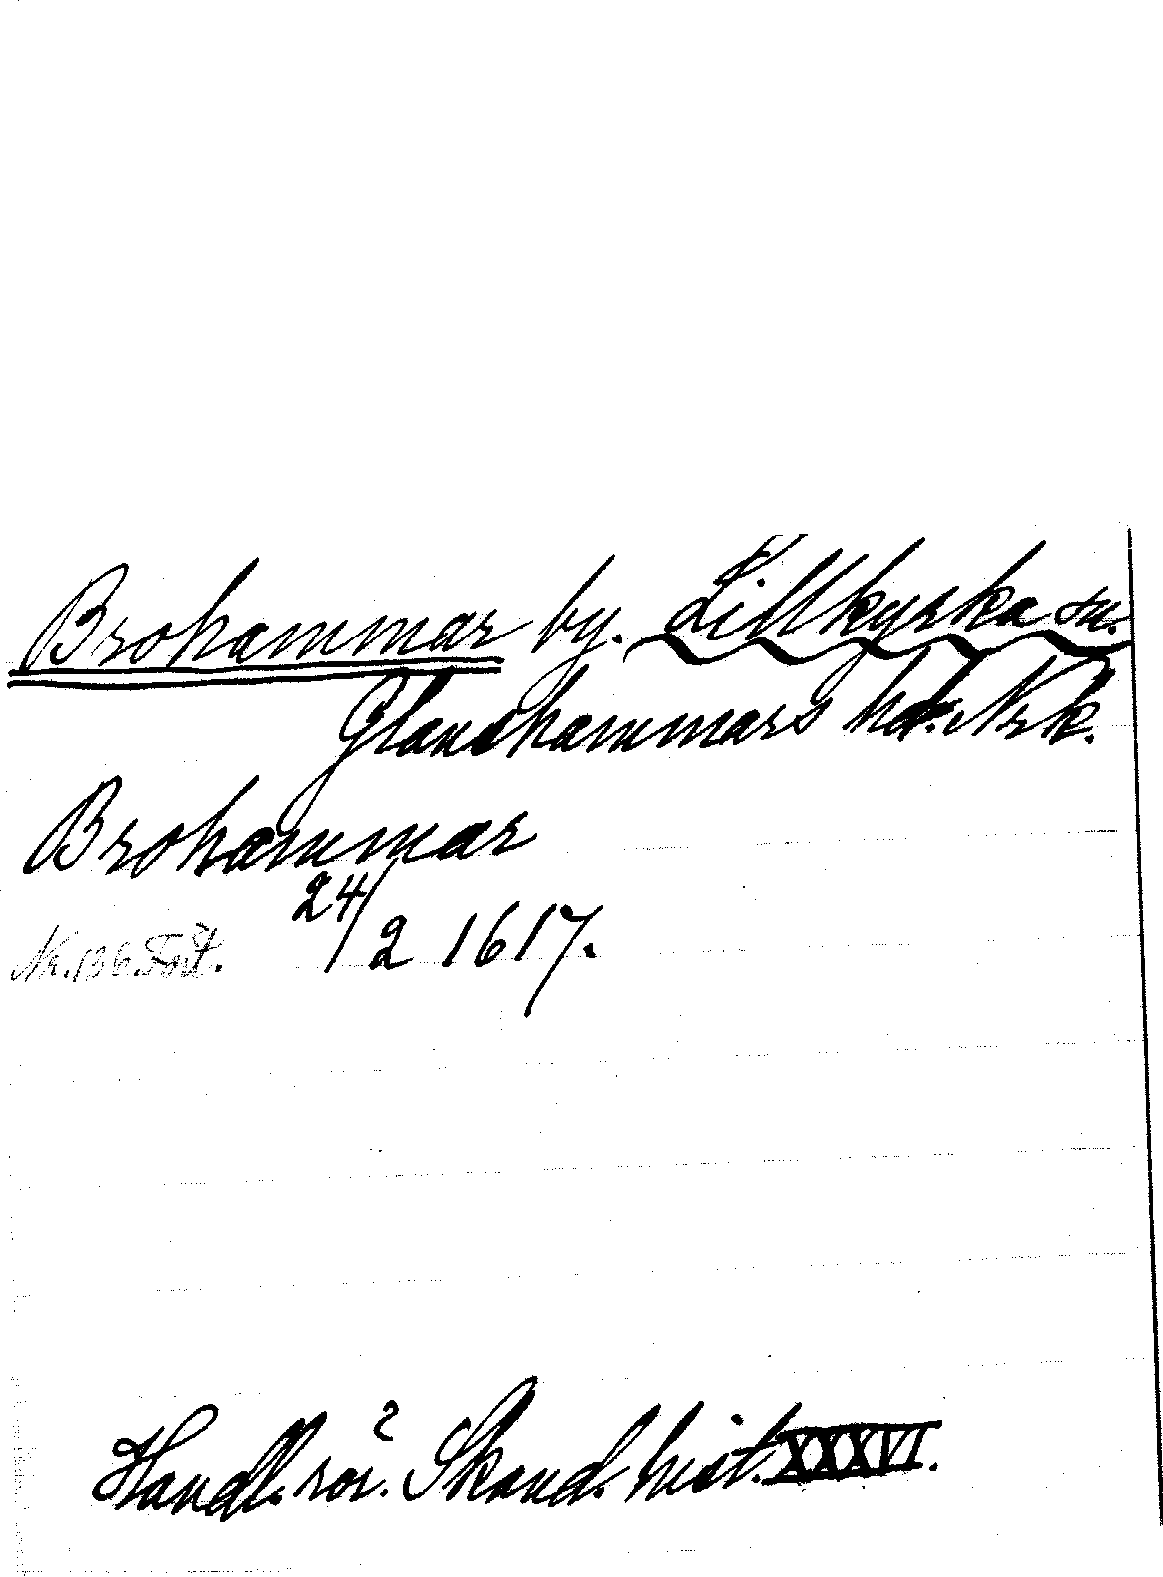 Brohammar by. Lillkyrka sn.
Glanshammars hd. Nrk.
Brohammar
24/2 1617.
Nr. 136. Fort.
Handl. rör. Skand. hist. XXXVI.